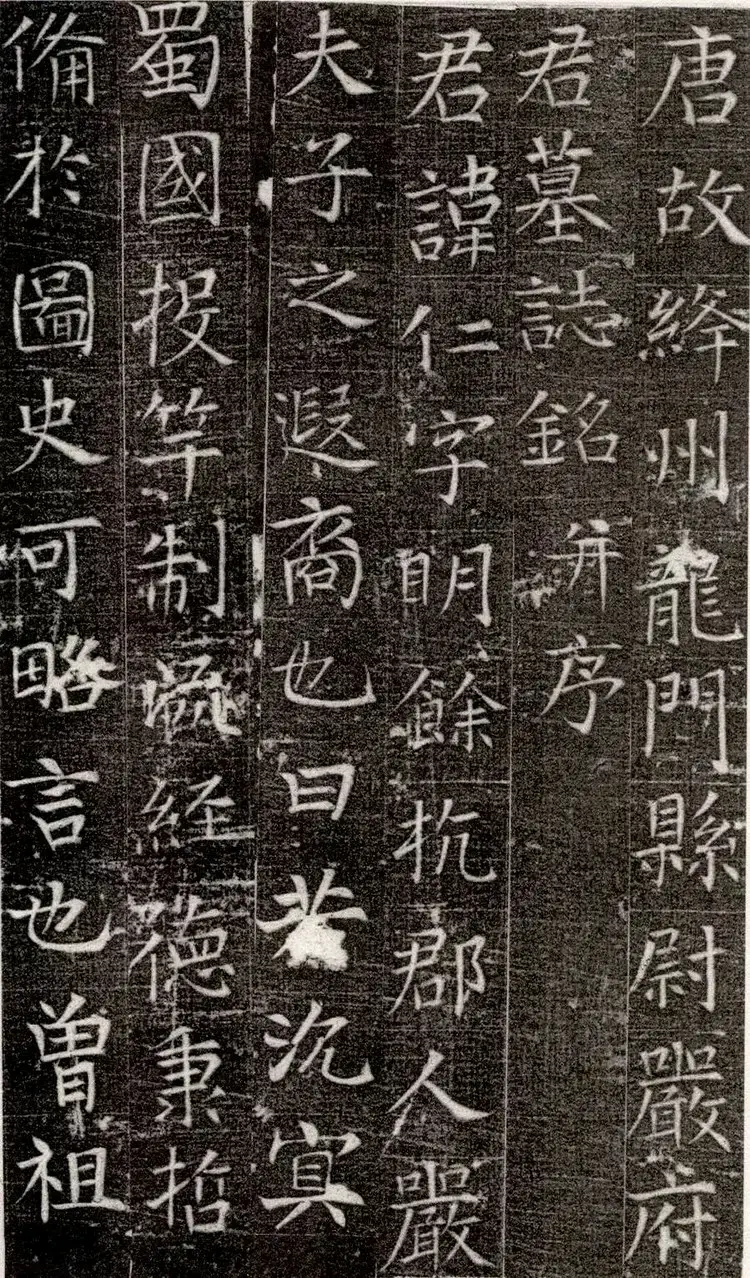 唐故絳州龍門縣尉嚴府
君墓誌銘并序
君諱仁字明餘杭郡人嚴
夫子之遐裔也曰若沉冥
蜀國投竿制𤨏經德秉哲
備於圖史可略言也曾祖